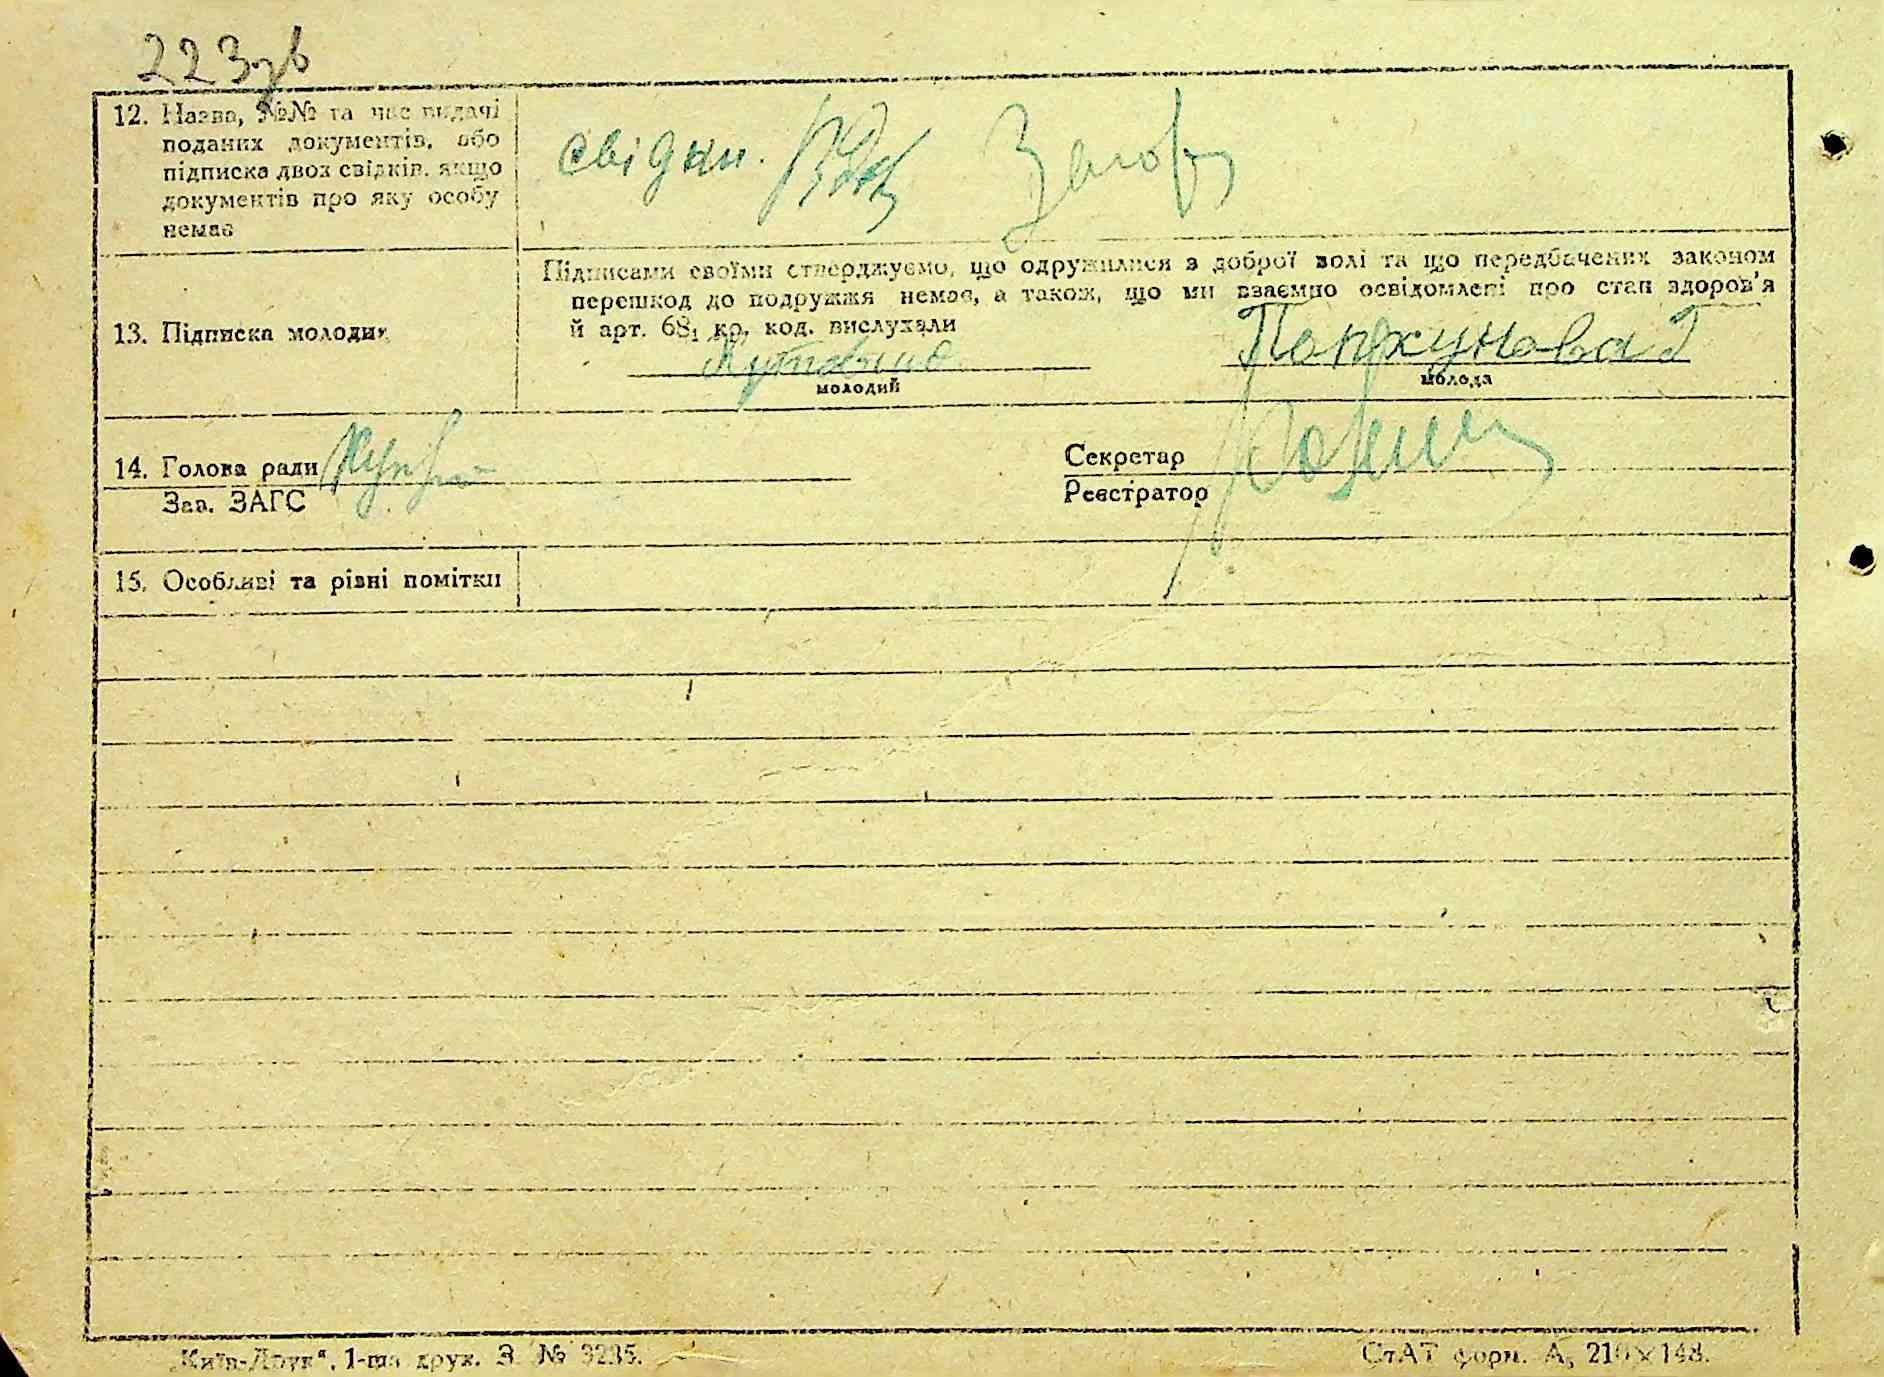 223зв
12. Назва, №№ та час видачі
поданих документів, або
підписка двох свідків, якщо
документів про яку особу
немає
свідки.
Підписами своїми стверджуємо, що одружилися з доброї волі та що передбачених законом
перешкод до подружжя немає, а також, що ми взаємно освідомлені про стан здоров'я
й арт. 68₁ кр. код. вислухали
13. Підписка молодих
молодий
молода
14. Голова ради
Секретар
Зав. ЗАГС
Реєстратор
15. Особливі та різні помітки
„Київ-Друк“, 1-ша друк. З. № 3235.
СтАТ форм. А₅ 210×148.